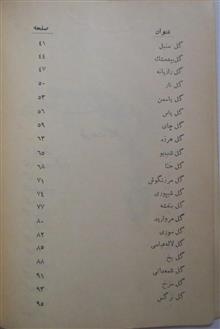 عنوان صفحه
گل سنبل ۴۱
گل بیدمشک ۴۴
گل رازیانه ۴۷
گل نار ۵۰
گل یاسمن ۵۳
گل یاس ۵۶
گل چای ۵۹
گل هرزه ۶۳
گل شببو ۶۵
گل حنا ۶۸
گل مرزنگوش ۷۱
گل شیپوری ۷۴
گل بنفشه ۷۷
گل مروارید ۸۰
گل سوری ۸۲
گل لاله‌عباسی ۸۵
گل یخ ۸۸
گل شمعدانی ۹۱
گل سرخ ۹۳
گل نرگس ۹۵